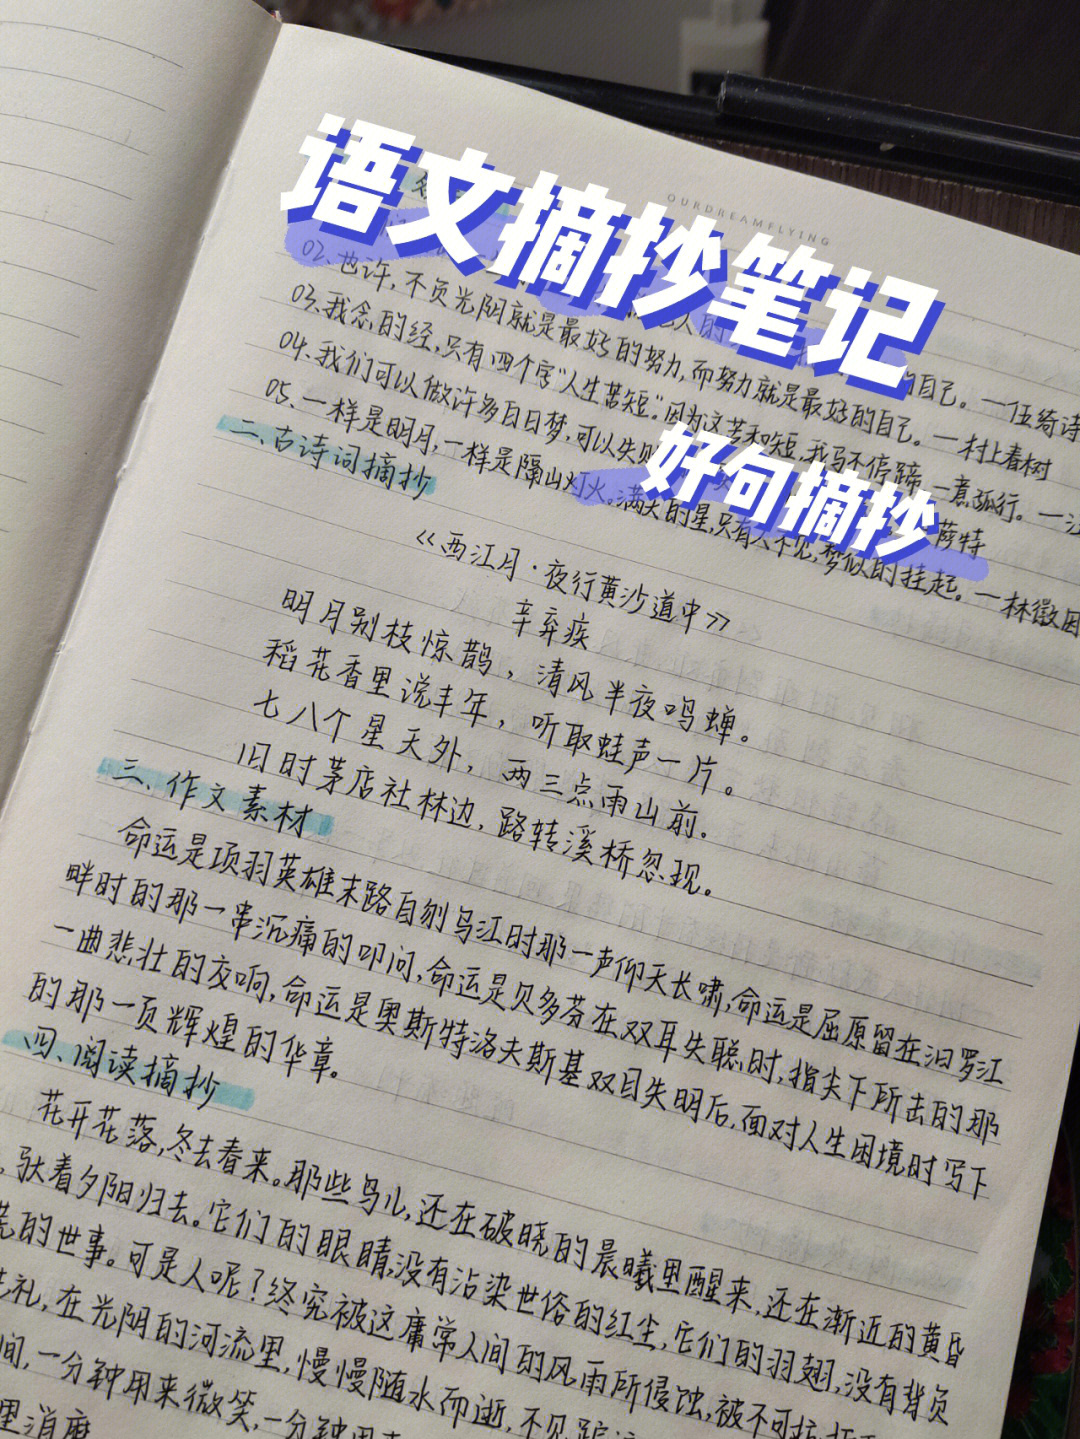 OURDREAMFLYING
语文摘抄笔记
好句摘抄
02.也许,不负光阴就是最好的努力,而努力就是最好的自己。一村上春树
自己。一伍绮诗
03.我念的经,只有四个字"人生苦短"。因为这苦和短,我马不停蹄,一意孤行。一
04.我们可以做许多白日梦,可以失败 萨特
05.一样是明月,一样是隔山灯火。满天的星,只有人不见,梦似的挂起。一林徽因
二、古诗词摘抄
《西江月·夜行黄沙道中》
辛弃疾
明月别枝惊鹊,清风半夜鸣蝉。
稻花香里说丰年,听取蛙声一片。
七八个星天外,两三点雨山前.
旧时茅店社林边,路转溪桥忽现。
三、作文素材
命运是项羽英雄末路自刎乌江时那一声仰天长啸;命运是屈原留在汨罗江
畔时的那一串沉痛的叩问,命运是贝多芬在双耳失聪时,指尖下所击的那
一曲悲壮的交响,命运是奥斯特洛夫斯基双目失明后,面对人生困境时写下
的那一页辉煌的华章。
四、阅读摘抄
花开花落,冬去春来。那些鸟儿,还在破晓的晨曦里醒来,还在渐近的黄昏
,驮着夕阳归去。它们的眼睛,没有沾染世俗的红尘,它们的羽翅,没有背负
的世事。可是人呢?终究被这庸常人间的风雨所侵蚀,被不可抗
礼,在光阴的河流里,慢慢随水而逝,不见踪
间,一分钟用来微笑,一分钟用来
里消磨